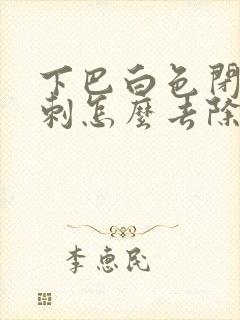 下巴白色閉
刺怎麼去除
李惠民